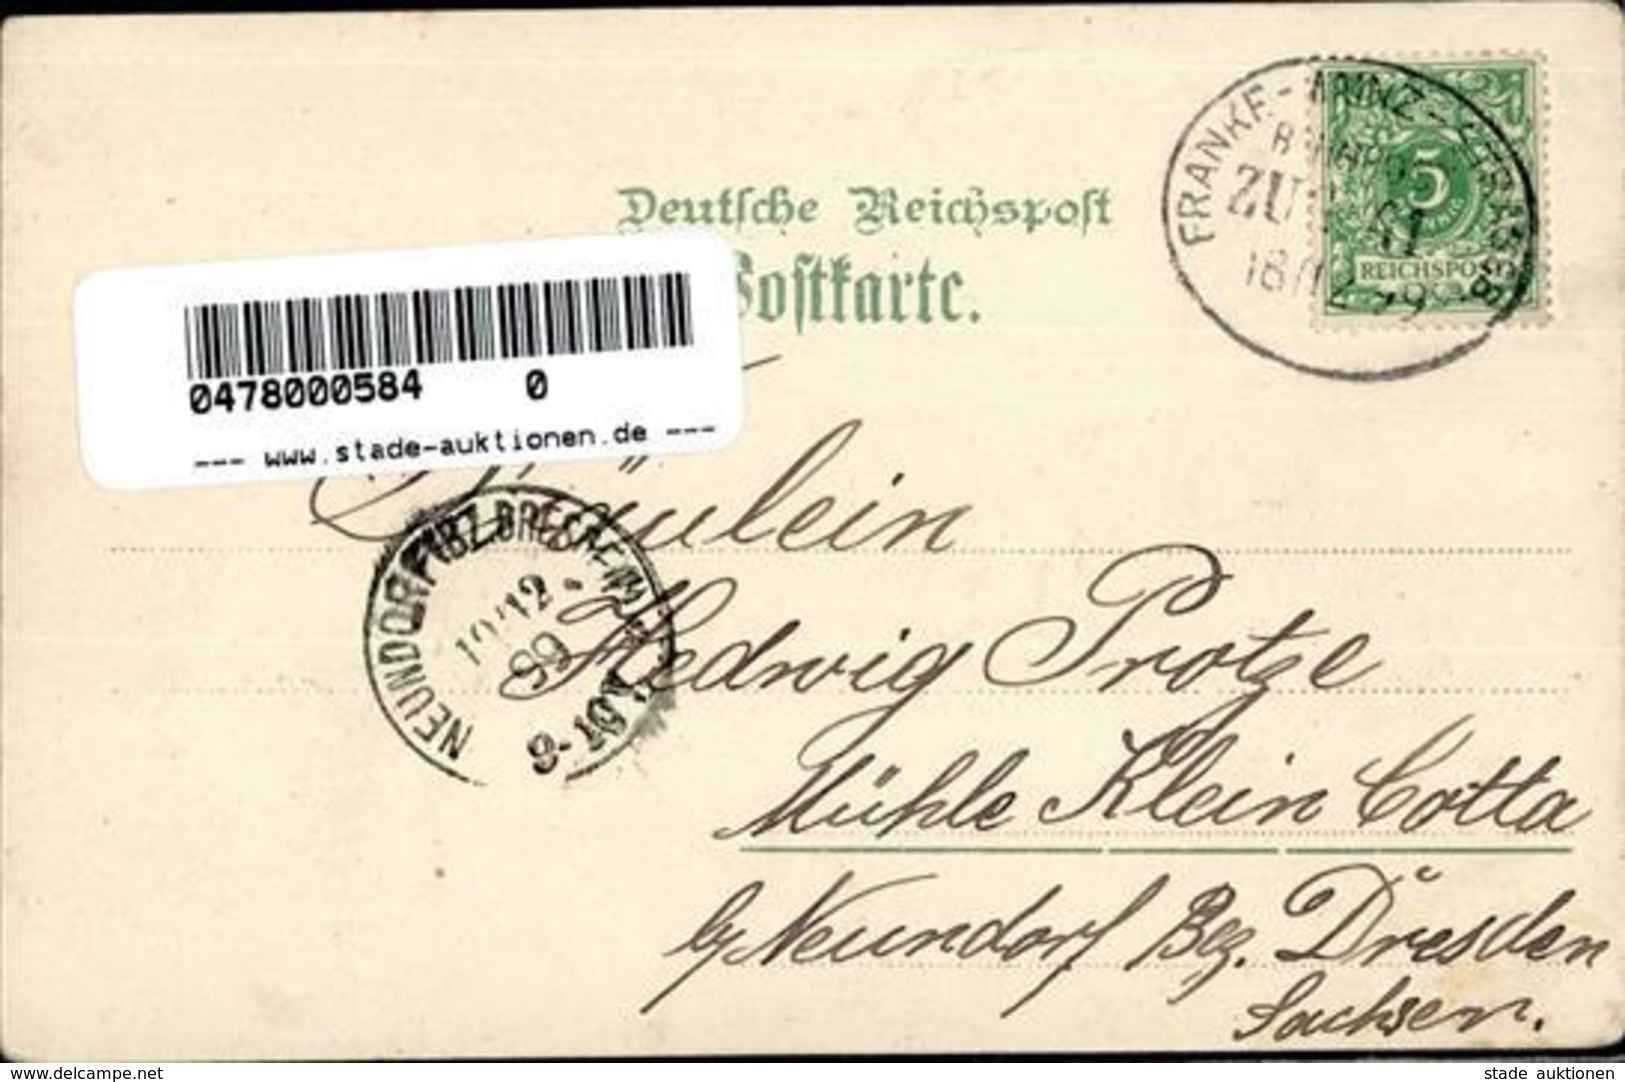 Deutsche Reichspost
Postkarte.
FRANKF.-MAINZ-STRASSB.
ZUG 61
18/12 99
5
REICHSPOST
0478000584 0
--- www.stade-auktionen.de ---
Fräulein
NEUNDORF BZ. DRESDEN
19/12
99
8-10V.
Hedwig Protze
Mühle Klein Cotta
b/ Neundorf Bez. Dresden
Sachsen.
www.delcampe.net
stade auktionen